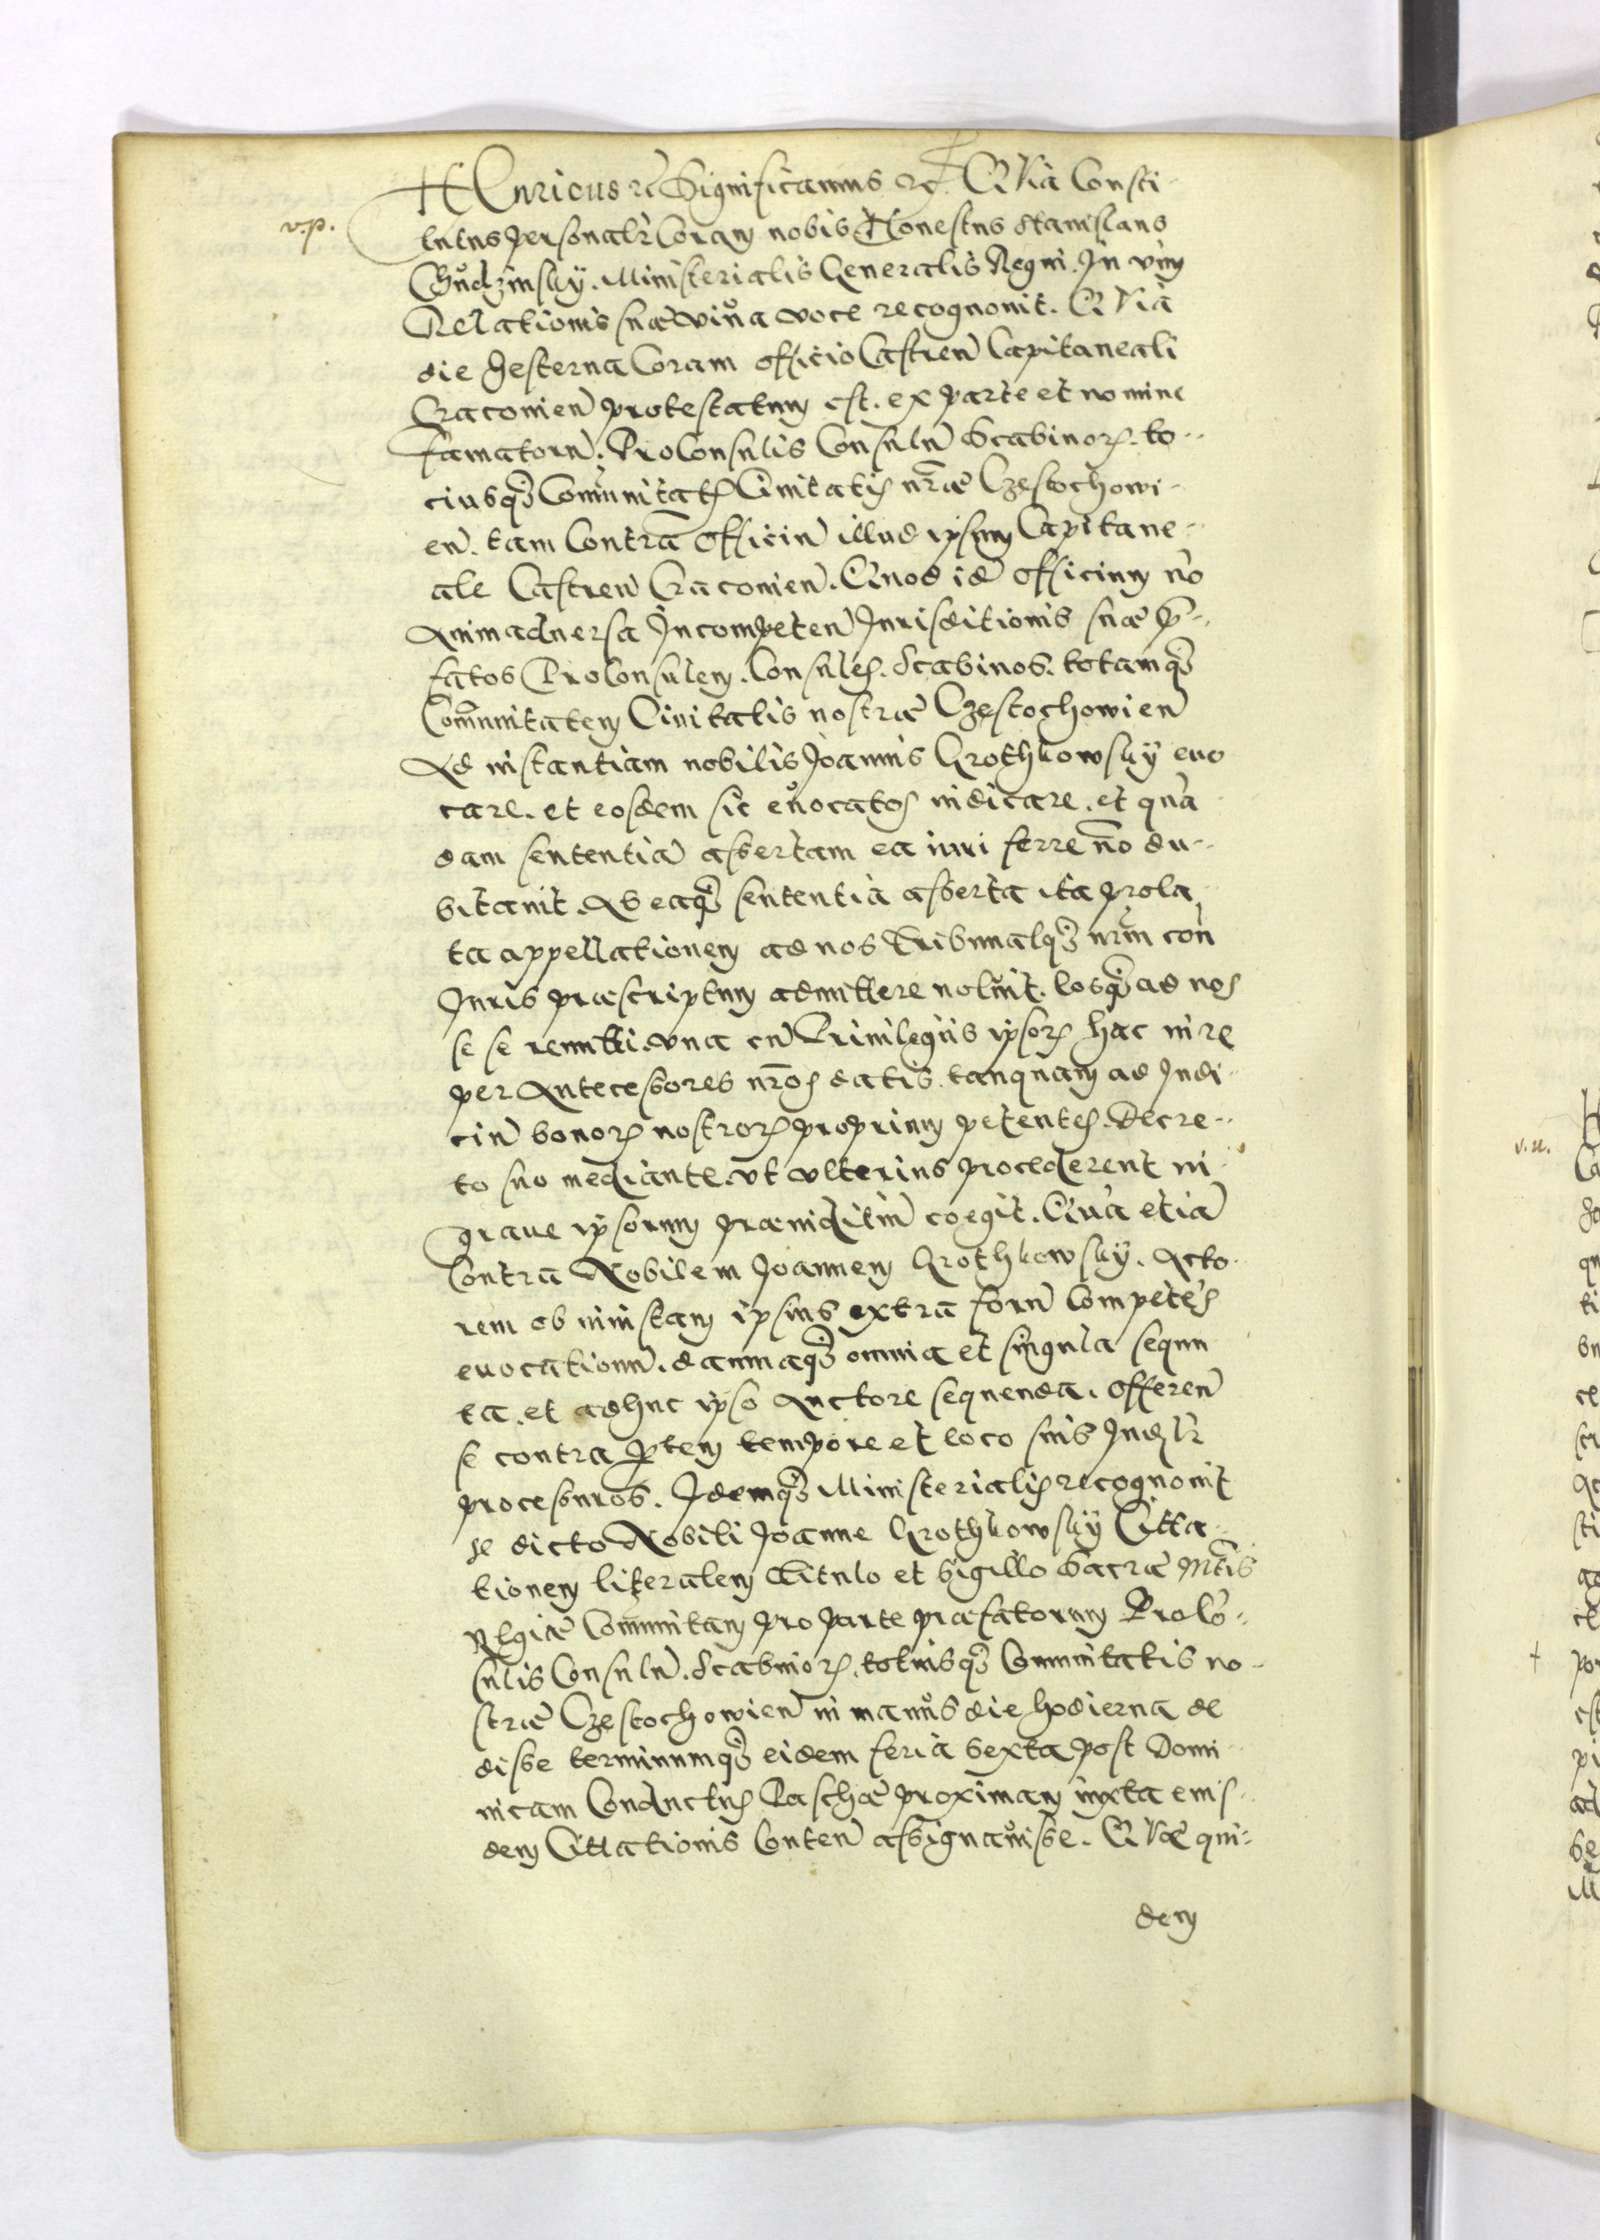 HEnricus etc Significamus etc. QVia Consti-
v.p.
tutus personalr Coram nobis Honestus Stanislaus
Budzinsky. Ministerialis Generalis Regni. In vim
Relationis suae viva voce recognovit. QVia
die hesterna Coram officio Castren Capitaneali
Cracovien protestatum est. ex parte et nomine
famatorũ. ProConsulis Consulũ Scabinor. to-
ciusq Comunitatis Civitatis nrae Czestochowi-
en. tam Contra Officiũ illud ipsum Capitane-
ale Castren Cracovien. Quod id Officium nõ
Animadversa Incompeten Jurisditionis suae p-
fatos ProConsulem. Consules. Scabinos. totamq
Comunitatem Civitatis nostrae Czestochowien
Ad instantiam nobilis Joannis Grothkowsky evo
care. et eosdem sic evocatos iudicare. et quã
dam sententiã assertam ea iuri ferre nõ du-
bitavit. Ab eaq sententia asserta ita prola
ta appellationem ad nos Tribunalq nrm con
Juris praescriptum admittere noluit. eosq ad nos
se se remitti. una cũ Privilegiis ipsor hac in re
per Antecessores nros datis. tanquam ad Judi-
ciũ bonor nostror proprium petentes. Decre-
to suo mediante. ut ulterius procederent in
grave ipsorum praeiuditiũ coegit. Quã etiã
Contra Nobilem Joannem Grothkowsky. Acto-
rem ob iniustam ipsius extra forũ Competes
evocationẽ. damnaq omnia et singula sequu
ta. et adhuc ipso Auctore sequenda. offeren
se contra ptem tempore et loco suis Judlr
processuros. Idemq Ministerialis recognovit
se dicto Nobili Joanne Grothkowsky Citta-
tionem literalem Titulo et Sigillo Sacrae Mtis
Regiae Comunitam pro parte praefatorum ProCõ-
sulis Consulũ. Scabinor. totiusq Comunitatis no-
strae Czestochowien in manus die hodierna de
disse terminumq eidem feria sexta post Domi-
nicam Conductus Paschae proximam iuxta eius-
dem Cittationis Conten assignavisse. QVae qui-
dem